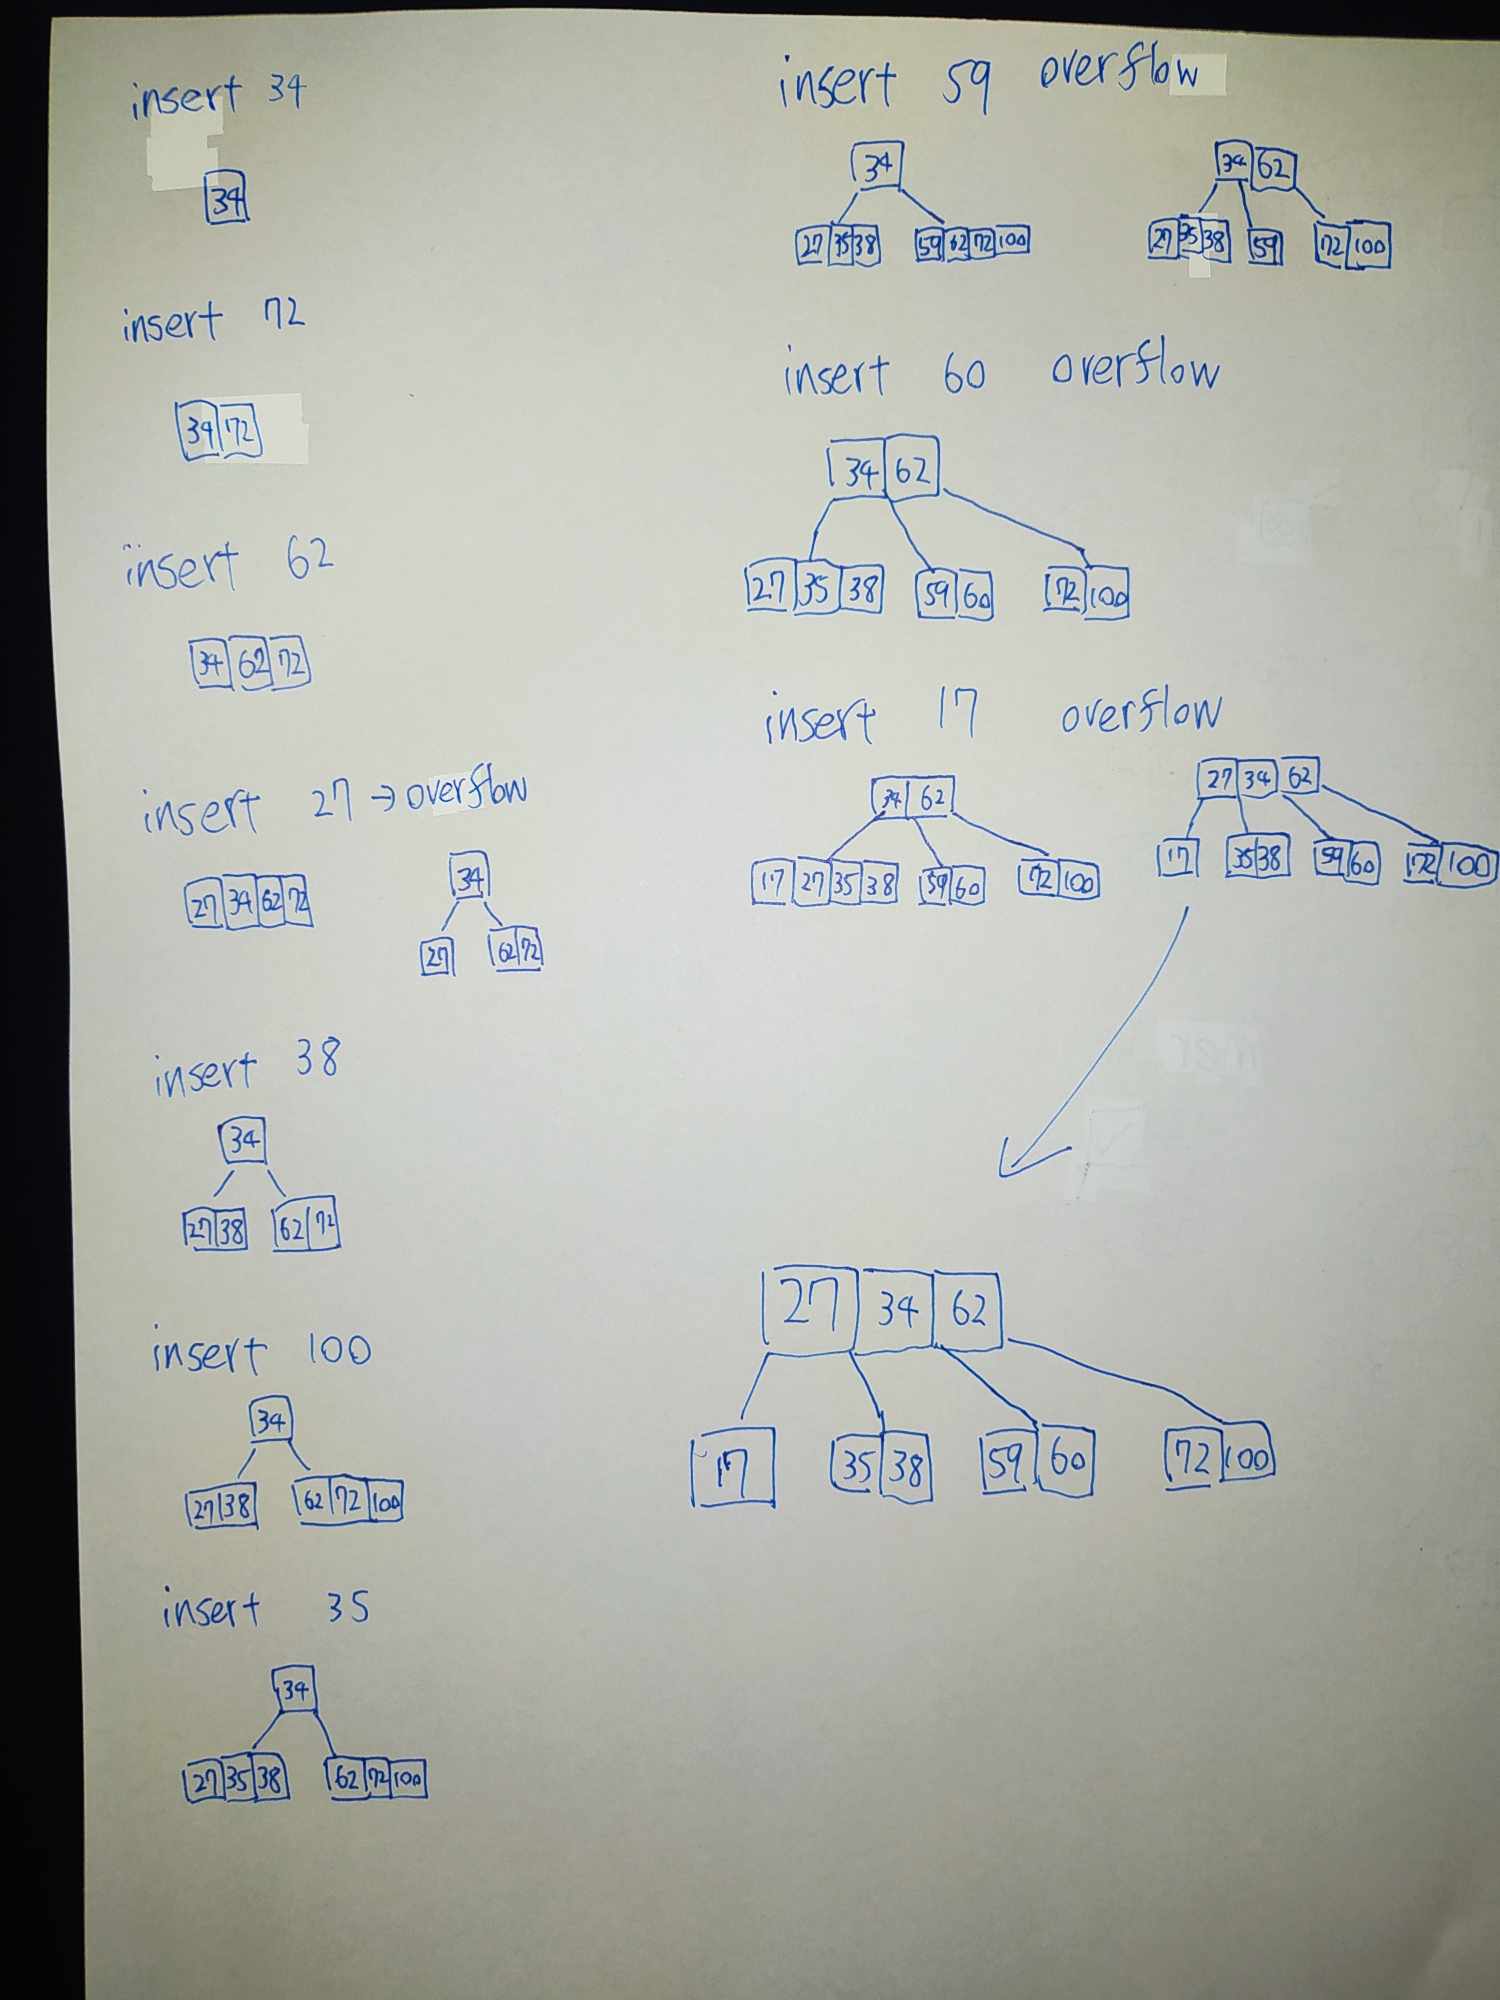 insert 34
34
insert 72
34 72
insert 62
34 62 72
insert 27 → overflow
27 34 62 72
34
27 62 72
insert 38
34
27 38 62 72
insert 100
34
27 38 62 72 100
insert 35
34
27 35 38 62 72 100
insert 59 overflow
34
27 35 38 59 62 72 100
34 62
27 35 38 59 72 100
insert 60 overflow
34 62
27 35 38 59 60 72 100
insert 17 overflow
34 62
17 27 35 38 59 60 72 100
27 34 62
17 35 38 59 60 72 100
27 34 62
17 35 38 59 60 72 100